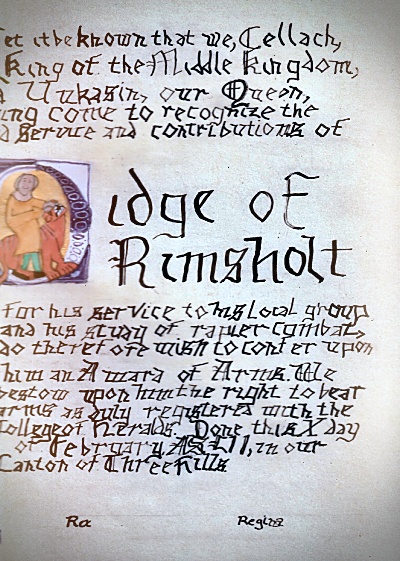 et it be known that we, Cellach,
King of the Middle Kingdom,
Vukasin, our Queen,
ing come to recognize the
d service and contributions of
idge of
Rimsholt
For his service to his local group
and his study of rapier combat,
do therefore wish to confer upon
him an Award of Arms. We
bestow upon him the right to bear
arms as duly registered with the
College of Heralds. Done this X day
of February, AS LII, in our
Canton of Three Hills
Rex Regina